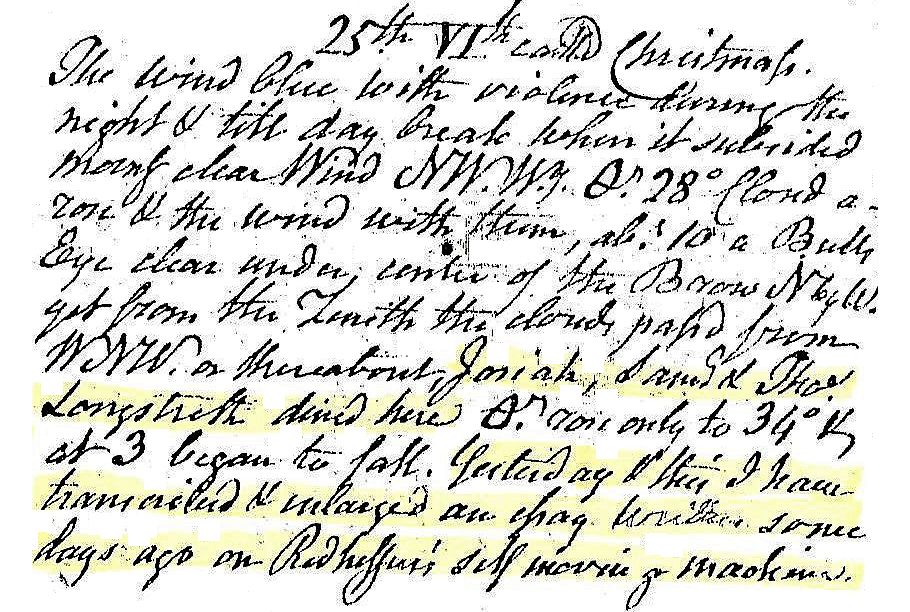 25th VIth called Christmass.
The wind blue with violence during the
night & till day break when it subsided
morng clear Wind NW. W.y. Θr. 28° Cloud a-
rose & the wind with them, abt. 10 a Bulls
Eye clear under, center of the Brow N by W.
yet from the Zenith the clouds pass'd from
WNW. or thereabout, Josiah, Saml & Thos.
Longstreth dined here Θr. rose only to 34° &
at 3 began to fall. Yesterday & this I have
transcribed & enlarged an essay written some
days ago on Redheffer's self moving machine.